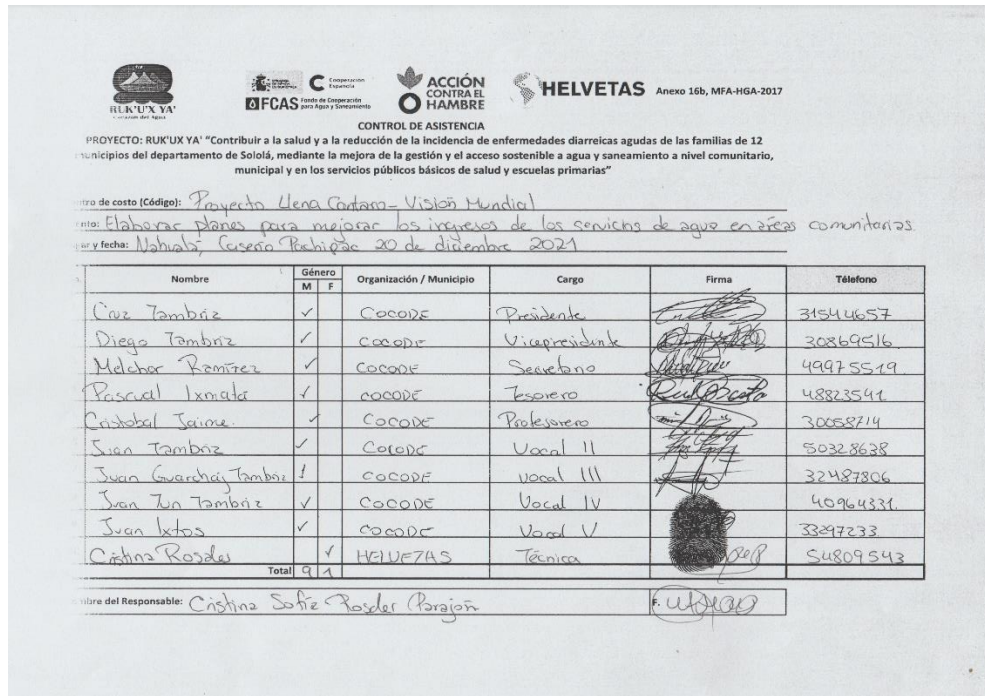 RUK'U'X YA'
Corazón del Agua
Cooperación Española
FCAS Fondo de Cooperación para Agua y Saneamiento
ACCIÓN CONTRA EL HAMBRE
HELVETAS
Anexo 16b, MFA-HGA-2017
CONTROL DE ASISTENCIA
PROYECTO: RUK'UX YA' “Contribuir a la salud y a la reducción de la incidencia de enfermedades diarreicas agudas de las familias de 12
municipios del departamento de Sololá, mediante la mejora de la gestión y el acceso sostenible a agua y saneamiento a nivel comunitario,
municipal y en los servicios públicos básicos de salud y escuelas primarias”
ntro de costo (Código): Proyecto Llena Cantaro - Visión Mundial
nto: Elaborar planes para mejorar los ingresos de los servicios de agua en áreas comunitarias.
ar y fecha: Nahualá, Caserío Pachipac 20 de diciembre 2021
Nombre Género M F Organización / Municipio Cargo Firma Télefono
Cruz Tambriz ✓ COCODE Presidente 31544657
Diego Tambriz ✓ COCODE Vicepresidente 30869516
Melchor Ramírez ✓ COCODE Secretario 49975519
Pascual Ixmatá ✓ COCODE Tesorero 48823541
Cristobal Jaime. ✓ COCODE 30058714
Juan Tambriz ✓ COCODE Vocal II 50328638
Juan Guarchaj Tambriz COCODE Vocal III 32487806
Juan Tun Tambriz ✓ COCODE Vocal IV 40964331.
Juan Ixtos ✓ COCODE Vocal V 33297233
Cristina Rosales ✓ HELVETAS Técnica 54809543
Total 9 1
bre del Responsable: Cristina Sofía F.